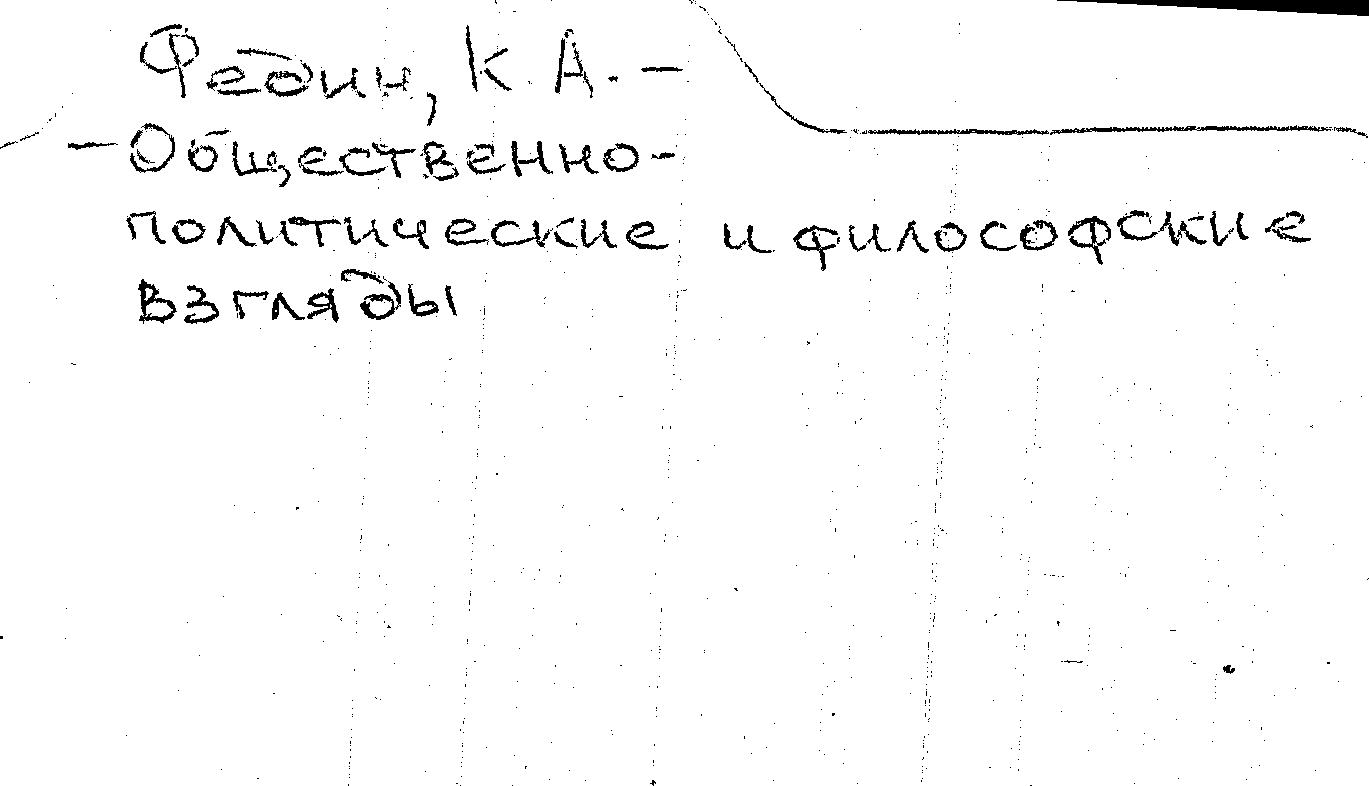 Федин, К А. –
– Общественно-
политические и философские
взгляды